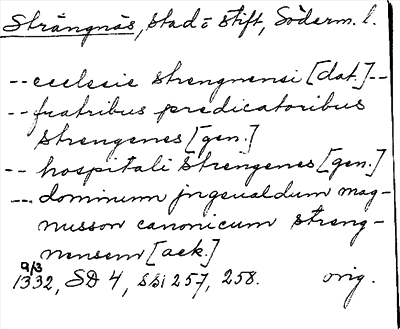 Strängnäs, stad o stift, Söderm. l.
-- ecclesie strengnensi [dat.] --
-- fratribus predicatoribus
strengenes [gen.]
-- hospitali strengenes [gen.]
--- dominum jngeualdum mag-
nusson canonicum streng-
nensem [ack.]
9/3
1332, SD 4, ss. 257, 258. orig.